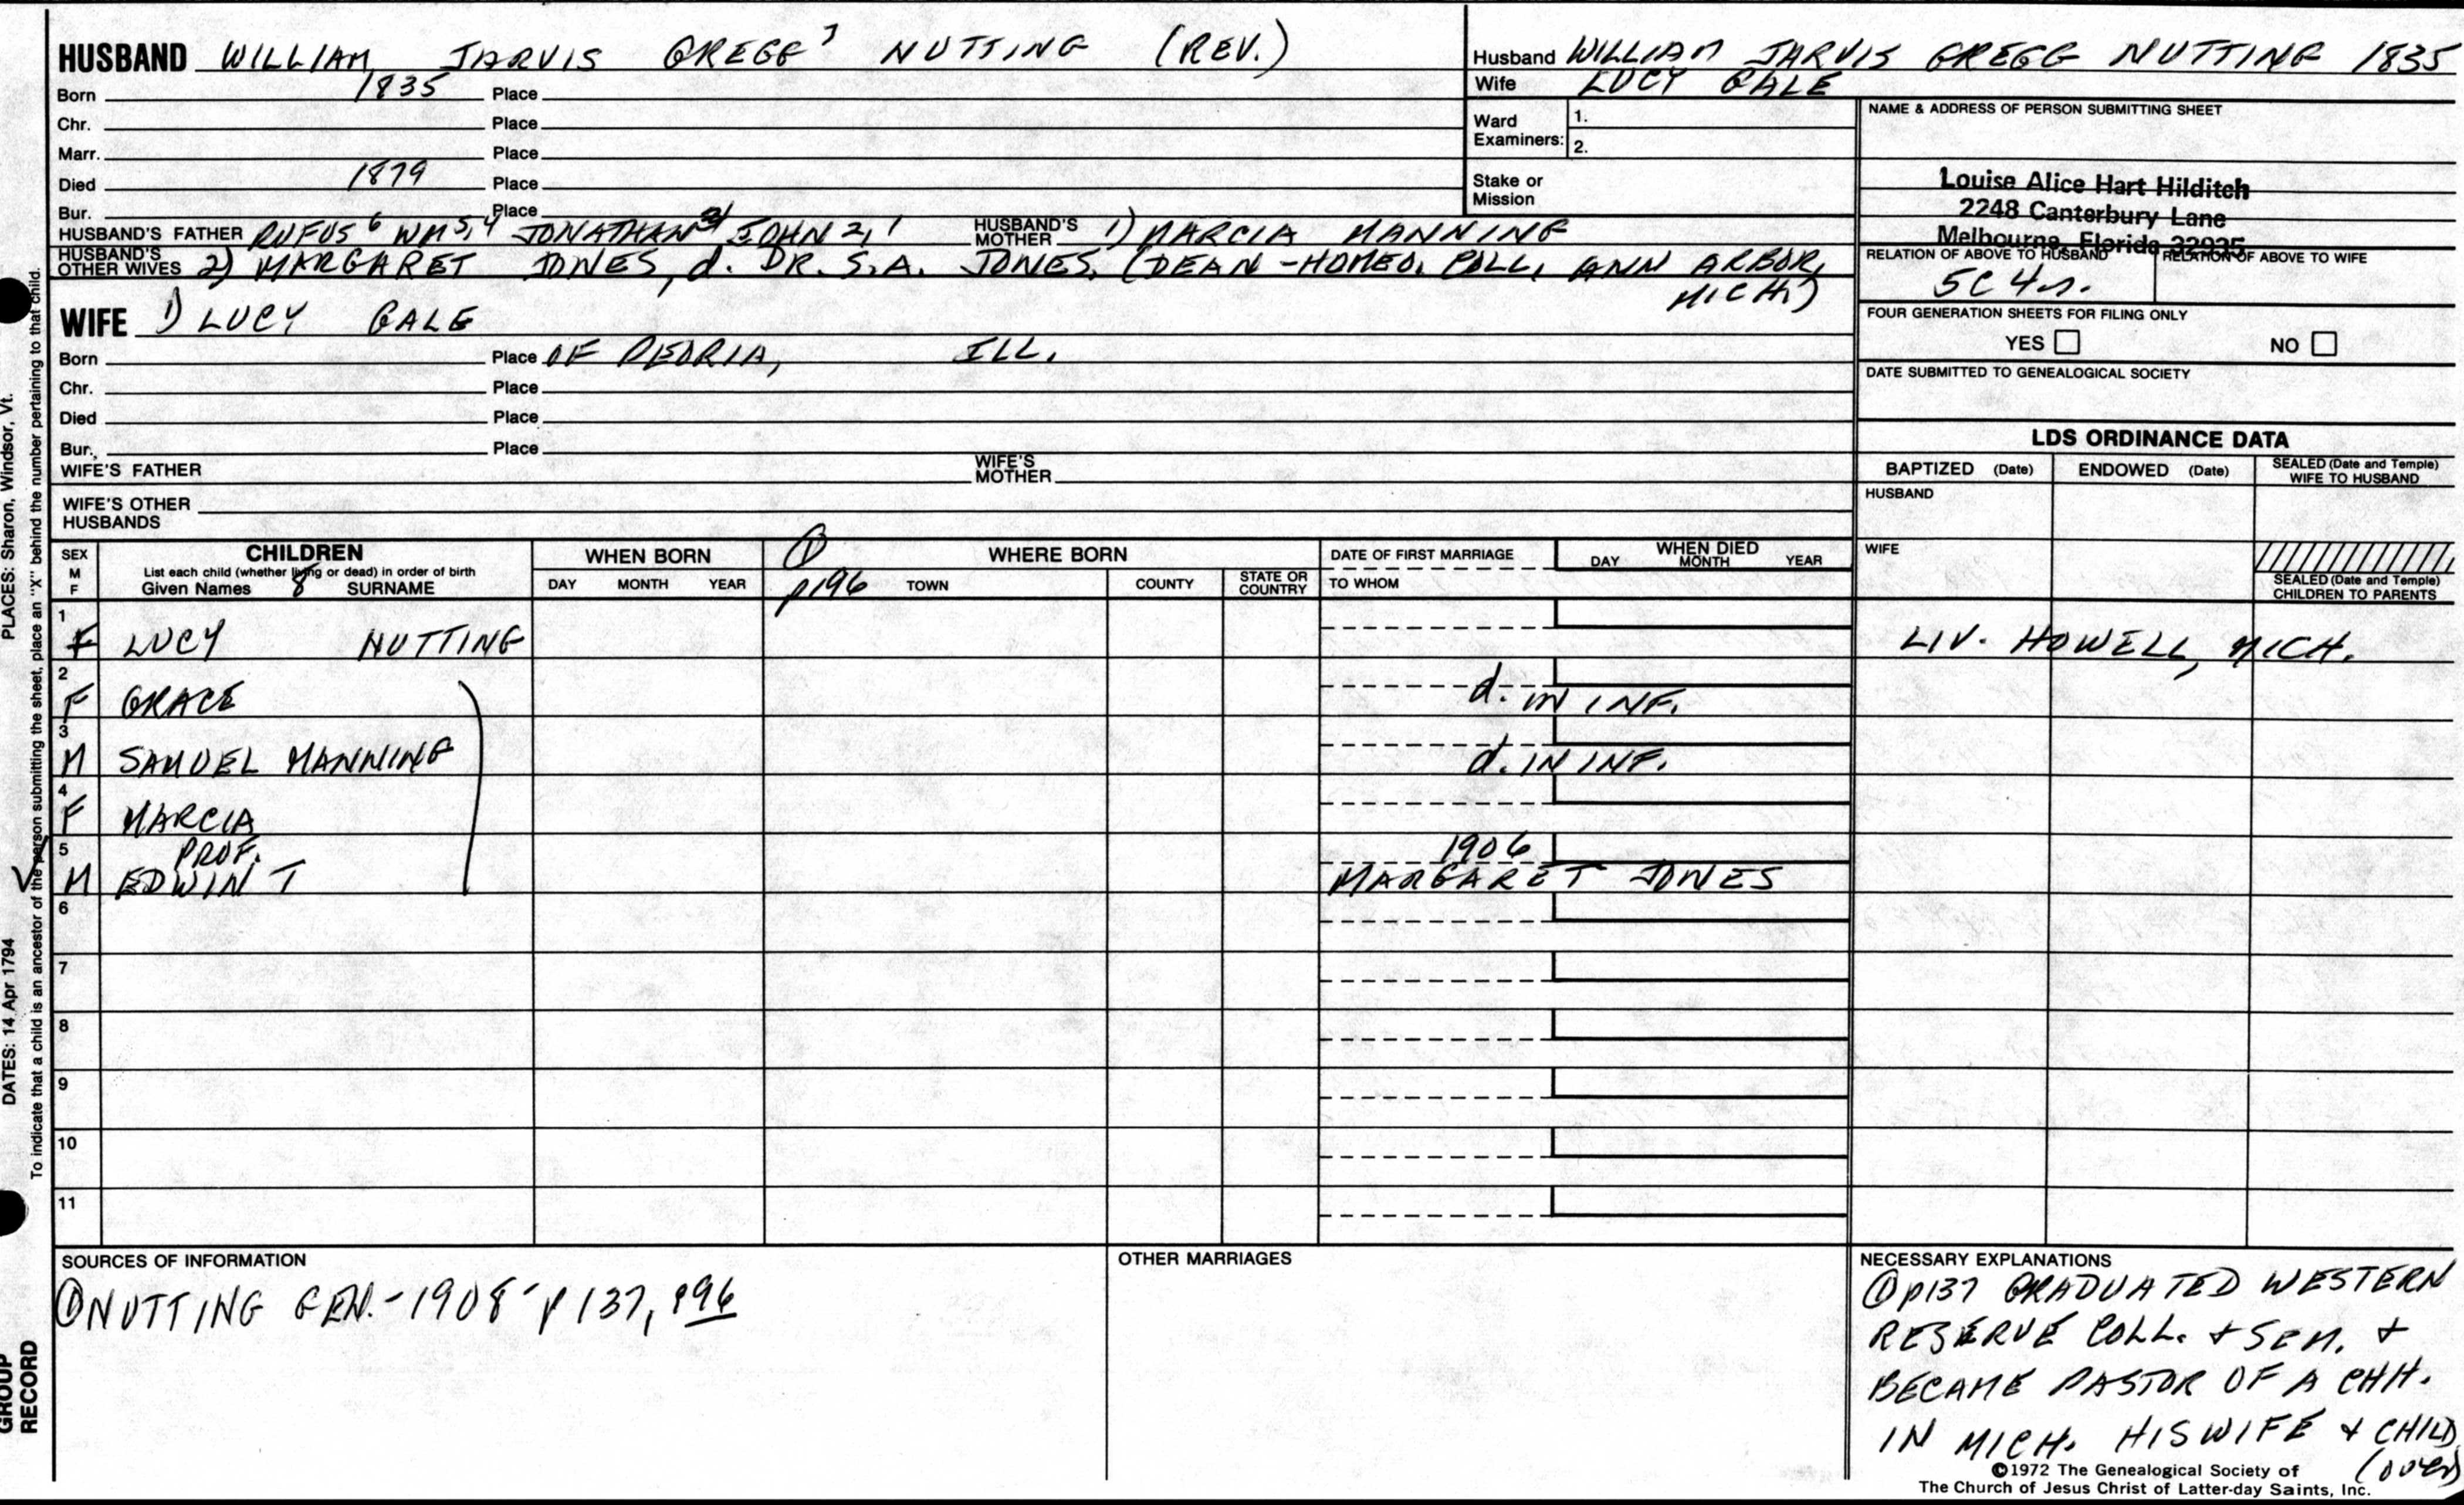 HUSBAND WILLIAM JARVIS GREGG 7 NUTTING (REV.)
Born 1835 Place
Chr. Place
Marr. Place
Died 1879 Place
Bur. Place
HUSBAND'S FATHER RUFUS 6 WM 5,4 JONATHAN 3 JOHN 2,1 HUSBAND'S MOTHER 1) MARCIA MANNING
HUSBAND'S OTHER WIVES 2) MARGARET JONES, d. DR. S.A. JONES. (DEAN - HOMEO. COLL, ANN ARBOR, MICH.)
Husband WILLIAM JARVIS GREGG NUTTING 1835
Wife LUCY GALE
Ward Examiners: 1.
2.
Stake or Mission
NAME & ADDRESS OF PERSON SUBMITTING SHEET
Louise Alice Hart Hilditch
2248 Canterbury Lane
Melbourne, Florida 32935
RELATION OF ABOVE TO HUSBAND RELATION OF ABOVE TO WIFE
5C 4r.
FOUR GENERATION SHEETS FOR FILING ONLY
YES NO
DATE SUBMITTED TO GENEALOGICAL SOCIETY
WIFE 1) LUCY GALE
Born Place OF PEORIA, ILL.
Chr. Place
Died Place
Bur. Place
WIFE'S FATHER WIFE'S MOTHER
WIFE'S OTHER HUSBANDS
LDS ORDINANCE DATA
BAPTIZED (Date) ENDOWED (Date) SEALED (Date and Temple) WIFE TO HUSBAND
HUSBAND
WIFE
SEALED (Date and Temple) CHILDREN TO PARENTS
SEX M F
CHILDREN
List each child (whether living or dead) in order of birth
Given Names 8 SURNAME
WHEN BORN
DAY MONTH YEAR
① p196
WHERE BORN
TOWN COUNTY STATE OR COUNTRY
DATE OF FIRST MARRIAGE
TO WHOM
WHEN DIED
DAY MONTH YEAR
1 F LUCY NUTTING LIV. HOWELL, MICH.
2 F GRACE d. IN INF.
3 M SAMUEL MANNING d. IN INF.
4 F MARCIA
5 M PROF. EDWIN T 1906 MARGARET JONES
6
7
8
9
10
11
SOURCES OF INFORMATION
① NUTTING GEN. - 1908 - p 137, 196
OTHER MARRIAGES
NECESSARY EXPLANATIONS
① p137 GRADUATED WESTERN
RESERVE COLL. + SEM. +
BECAME PASTOR OF A CHH.
IN MICH. HIS WIFE + CHILD
(OVER)
©1972 The Genealogical Society of
The Church of Jesus Christ of Latter-day Saints, Inc.
PLACES: Sharon, Windsor, Vt.
DATES: 14 Apr 1794
To indicate that a child is an ancestor of the person submitting the sheet, place an "X" behind the number pertaining to that child.
GROUP
RECORD